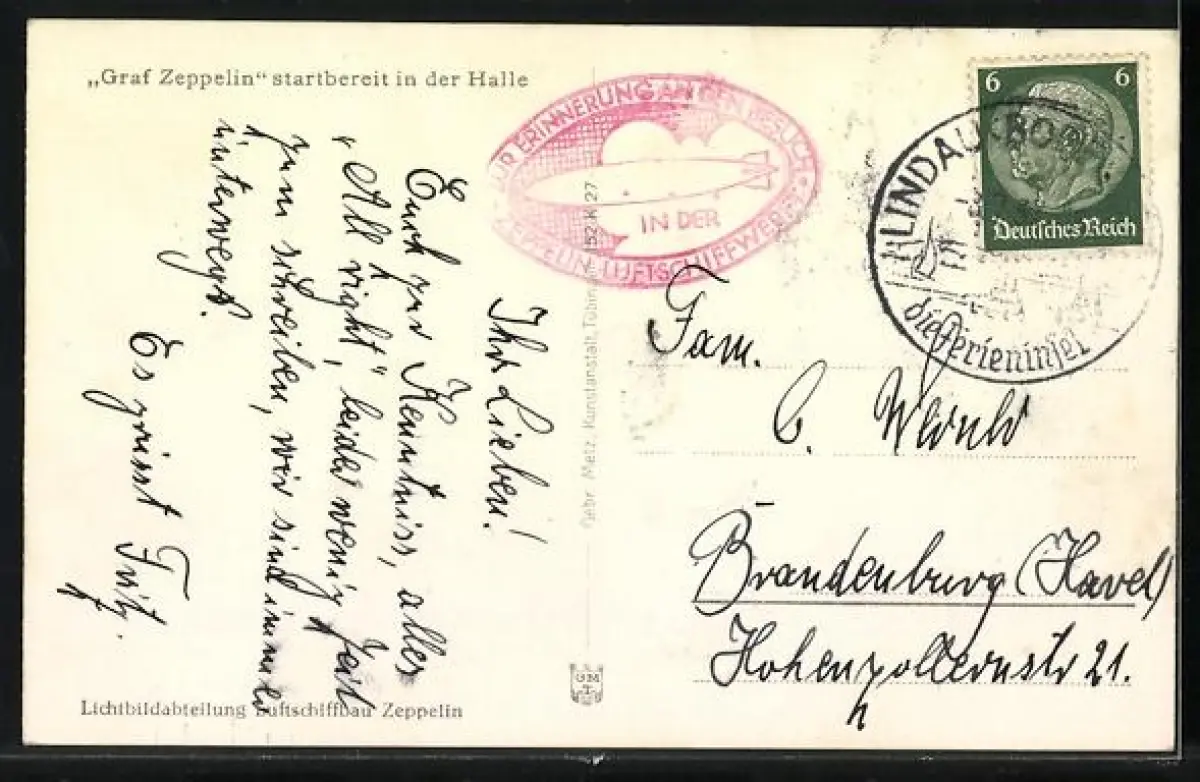 „Graf Zeppelin“ startbereit in der Halle
Ihr Lieben!
Euch zur Kenntniss, alles
„All right“, leider wenig Zeit
zum schreiben, wir sind immer
unterwegs.
Es grüsst Fritz.
Lichtbildabteilung Luftschiffbau Zeppelin
Gebr. Metz, Kunstanstalt, Tübingen
52 K 27
GM
T
ZUR ERINNERUNG AN DEN BESUCH
IN DER
ZEPPELIN-LUFTSCHIFFWERFT
6 6
Deutsches Reich
LINDAU
die Ferieninsel
Fam.
C.
Brandenburg (Havel)
Hohenzollernstr 21.